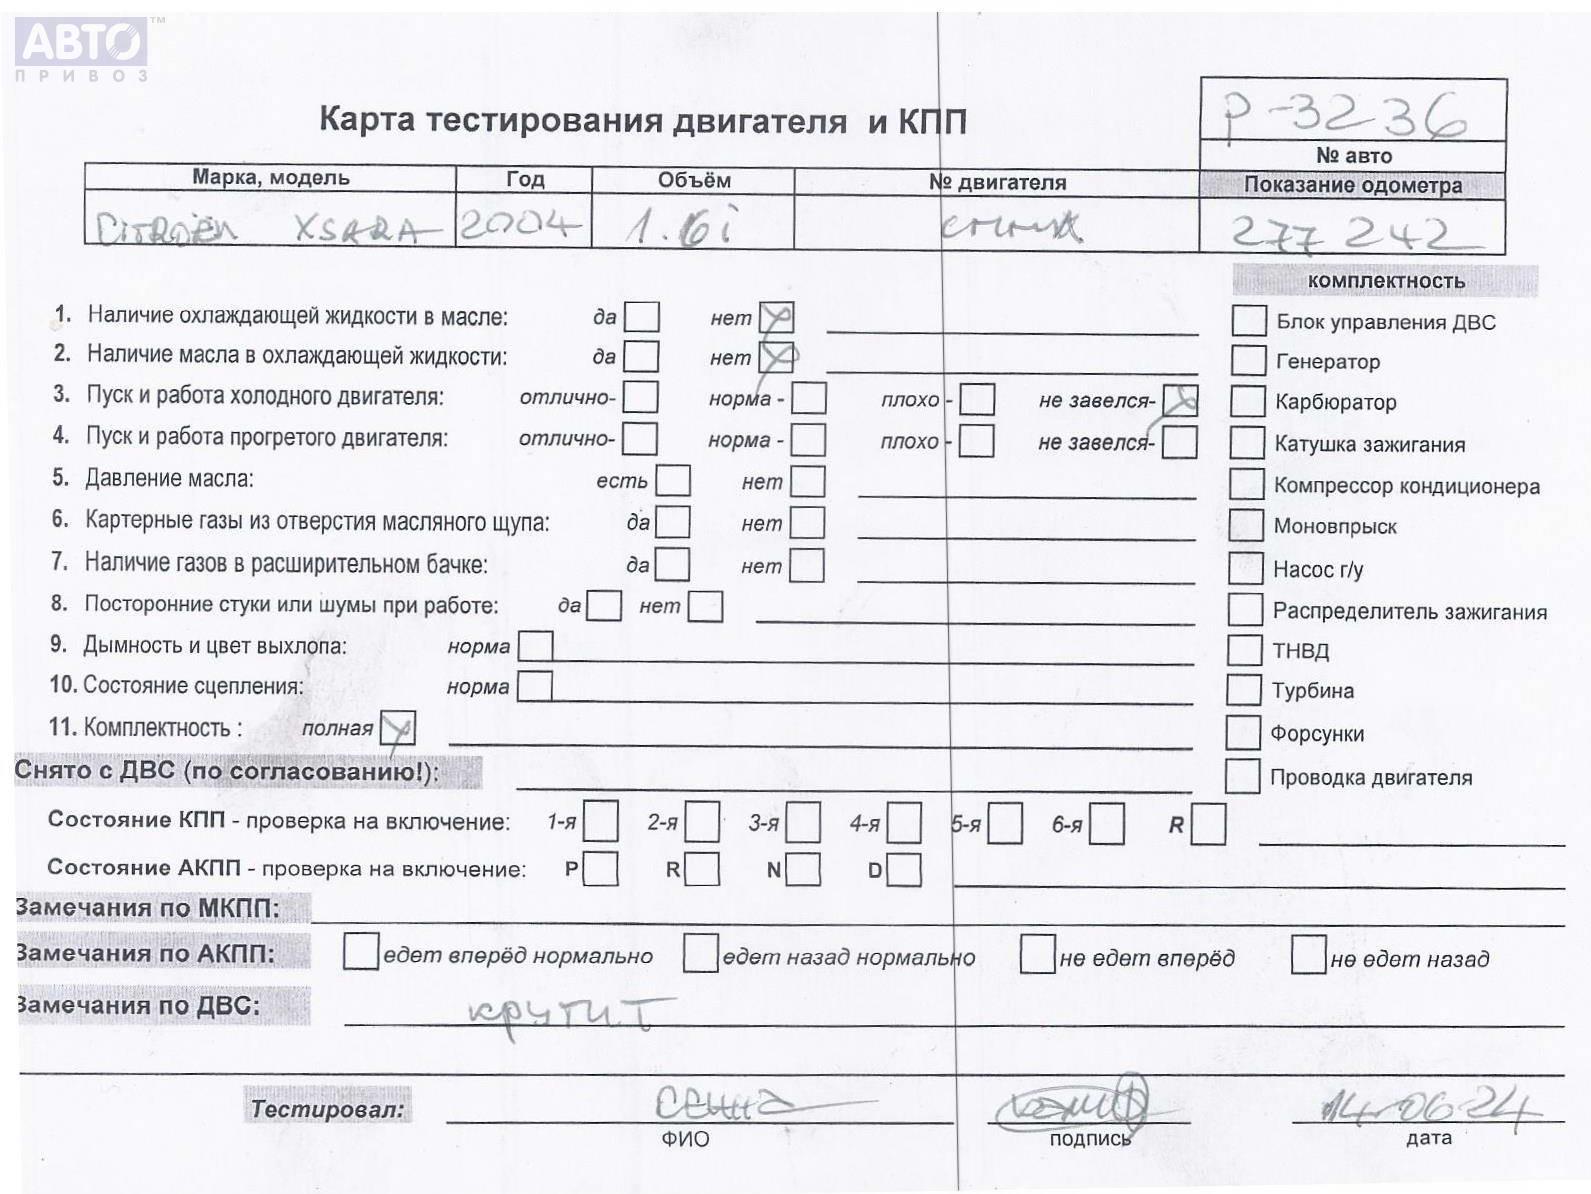 АВТО™
ПРИВОЗ
Карта тестирования двигателя и КПП
P-3236
№ авто
Марка, модель Год Объём № двигателя Показание одометра
CITROËN XSARA 2004 1.6i 277 242
комплектность
1. Наличие охлаждающей жидкости в масле: да нет
Блок управления ДВС
2. Наличие масла в охлаждающей жидкости: да нет
Генератор
3. Пуск и работа холодного двигателя: отлично- норма - плохо - не завелся-
Карбюратор
4. Пуск и работа прогретого двигателя: отлично- норма - плохо - не завелся-
Катушка зажигания
5. Давление масла: есть нет
Компрессор кондиционера
6. Картерные газы из отверстия масляного щупа: да нет
Моновпрыск
7. Наличие газов в расширительном бачке: да нет
Насос г/у
8. Посторонние стуки или шумы при работе: да нет
Распределитель зажигания
9. Дымность и цвет выхлопа: норма
ТНВД
10. Состояние сцепления: норма
Турбина
11. Комплектность : полная
Форсунки
Снято с ДВС (по согласованию!):
Проводка двигателя
Состояние КПП - проверка на включение: 1-я 2-я 3-я 4-я 5-я 6-я R
Состояние АКПП - проверка на включение: P R N D
Замечания по МКПП:
Замечания по АКПП: едет вперёд нормально едет назад нормально не едет вперёд не едет назад
Замечания по ДВС: крутит
Тестировал: 14.06.24
ФИО подпись дата